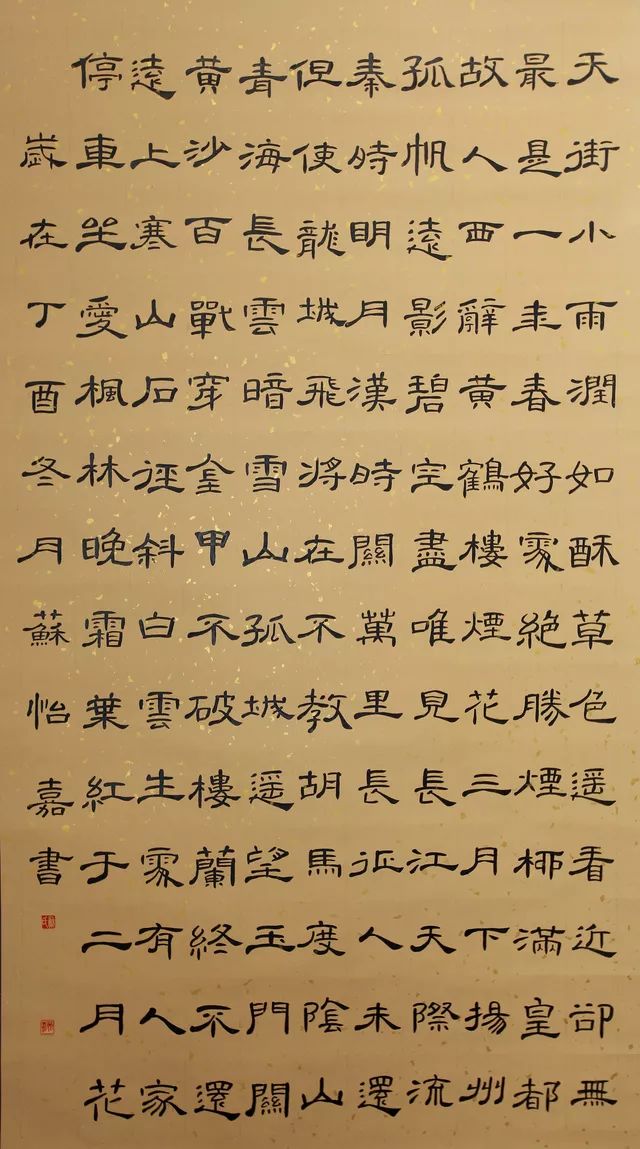 天街小雨潤如酥草色遥看近卻無
最是一年春好處絕勝煙柳滿皇都
故人西辭黃鶴樓煙花三月下揚州
孤帆遠影碧空盡唯見長江天際流
秦時明月漢時關萬里長征人未還
但使龍城飛將在不教胡馬度陰山
青海長雲暗雪山孤城遥望玉門關
黃沙百戰穿金甲不破樓蘭終不還
遠上寒山石徑斜白雲生處有人家
停車坐愛楓林晚霜葉紅于二月花
歲在丁酉冬月蘇怡嘉書